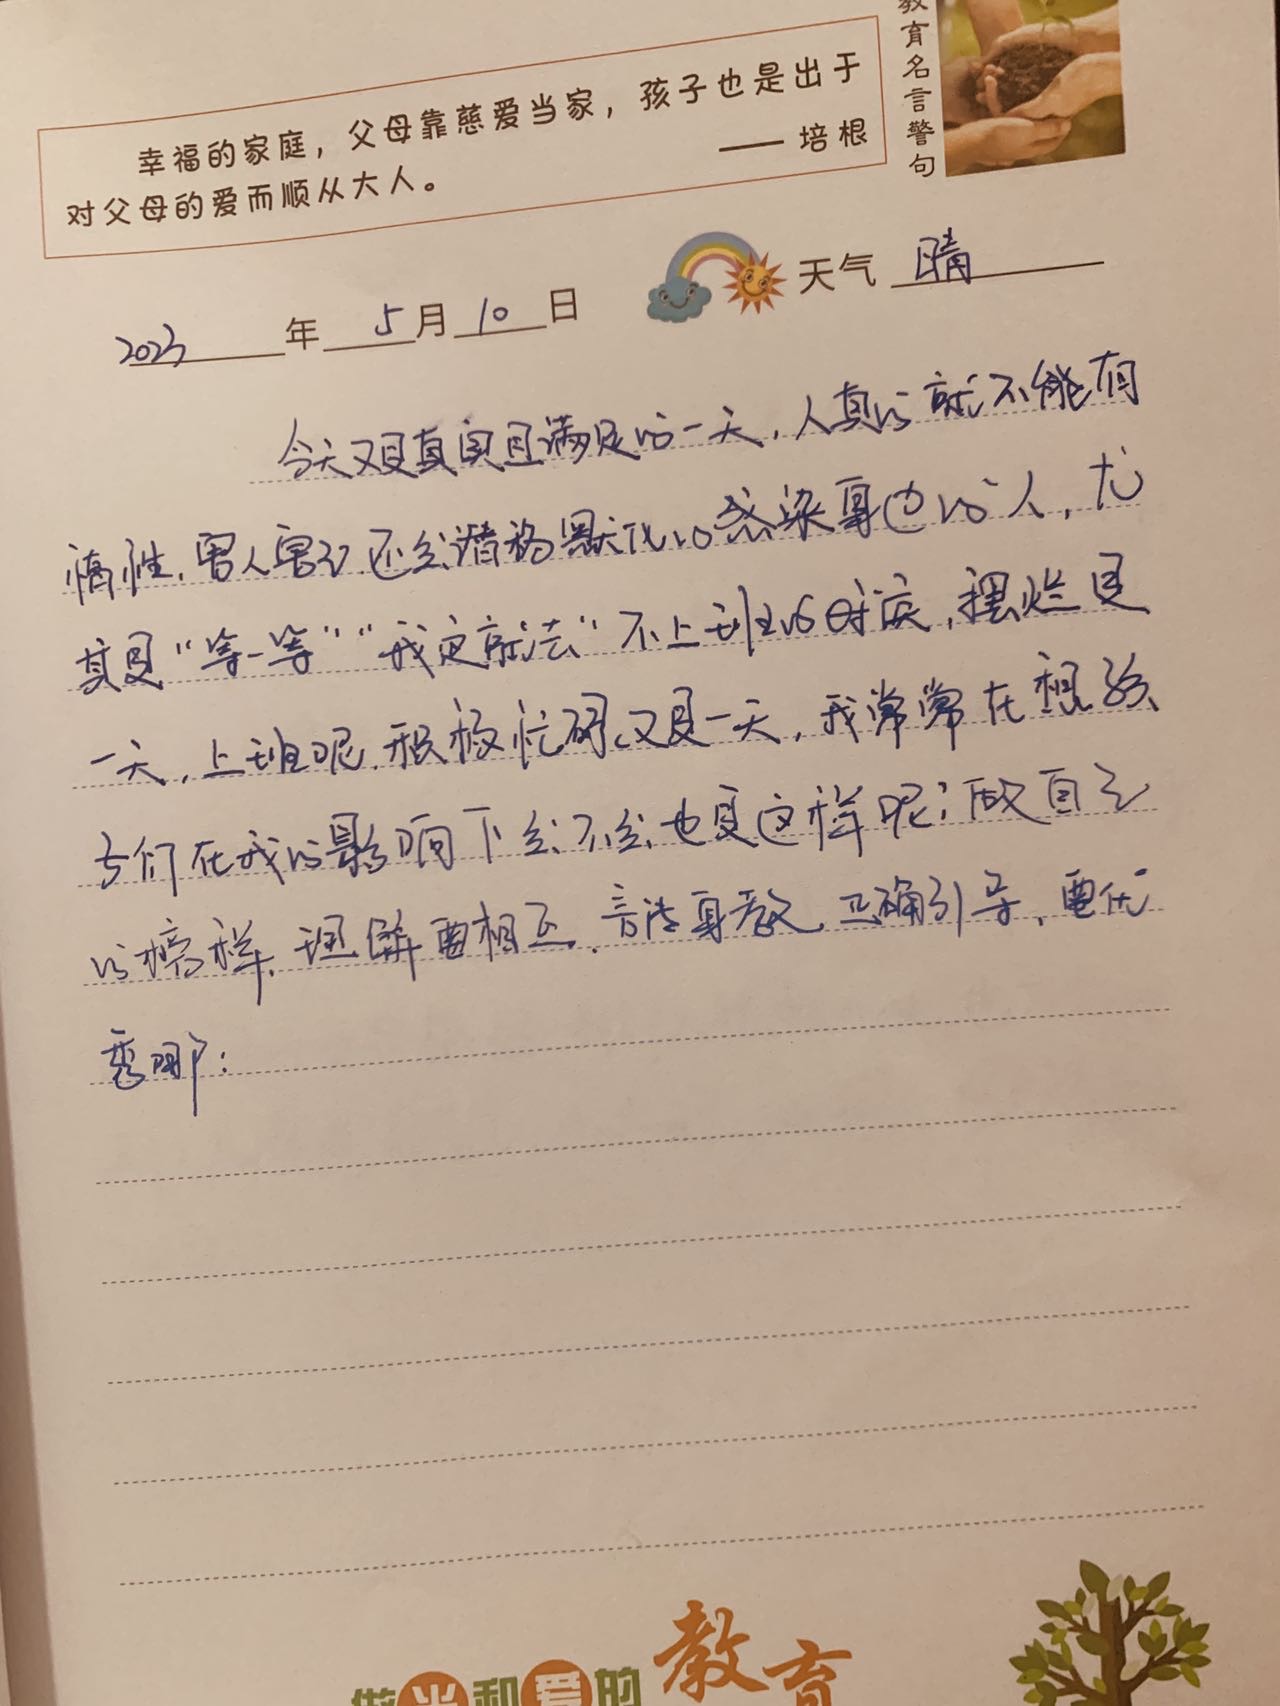 教育名言警句
幸福的家庭，父母靠慈爱当家，孩子也是出于
对父母的爱而顺从大人。
——培根
2023年5月10日 天气 晴
今天又是真实且满足的一天，人真的就不能有
惰性，害人害己还会潜移默化的感染身边的人，尤
其是“等一等”“我定就去”不上班的时候，摆烂是
一天，上班呢，积极忙碌又是一天，我常常在想孩
子们在我的影响下会不会也是这样呢；做自己
的榜样，理解要相互，言传身教，正确引导，要优
秀哪；
做光和爱的教育